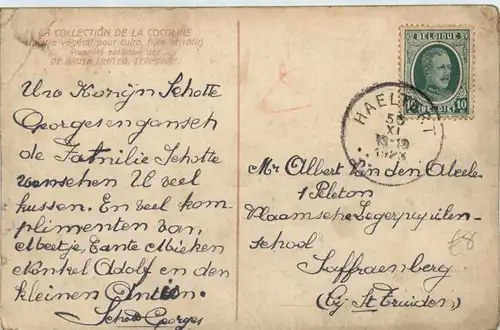 LA COLLECTION DE LA COCOLINE
végétal pour cuire, frire et rôtir
Propriété exclusive des
DE BRUYN LIMITED, TERMONDE.
Uw Kozijn Schotte
Georges en gansch
de Familie Schotte
wenschen U veel
kussen. En veel kom-
plimenten van,
Meetje, Tante Mieken
Nonkel Adolf en den
kleinen Antoin.
Schotte Georges
BELGIQUE
10 BELGIË 10
HAELTERT
XI
19
Mr Albert Van den Abeele
1 Peleton
Vlaamsche Legerpupillen-
school
Saffraenberg
(bij St Truiden)